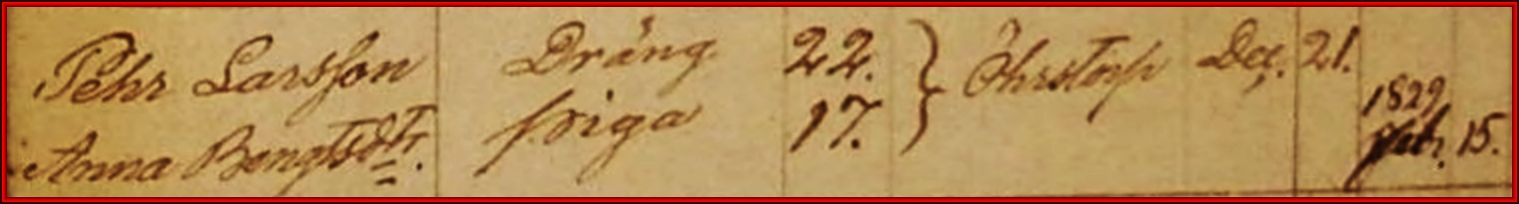 Pehr Larsson Dräng 22. Öhrstorp Dec. 21.
Anna Bengtsdtr. piga 17. 1829 Febr. 15.